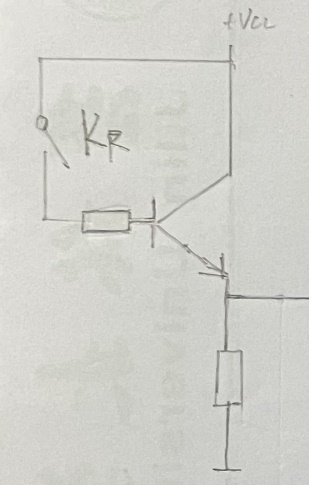 +VCC
KR